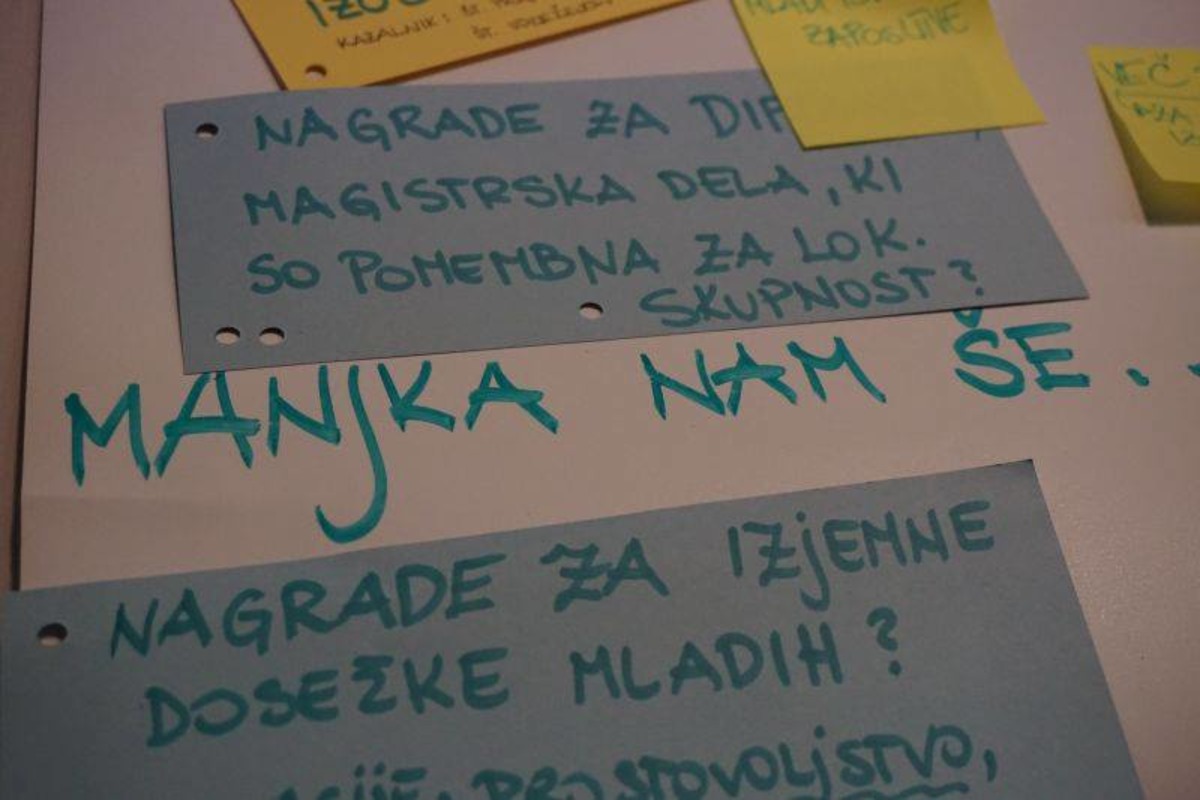 KAZALNIK: ŠT.
ŠT.
ZAPOSLITVE
VEČ
NAGRADE ZA
MAGISTRSKA DELA, KI
SO POMEMBNA ZA LOK.
SKUPNOST?
MANJKA NAM ŠE..
NAGRADE ZA IZJEMNE
DOSEŽKE MLADIH?
PROSTOVOLJSTVO,